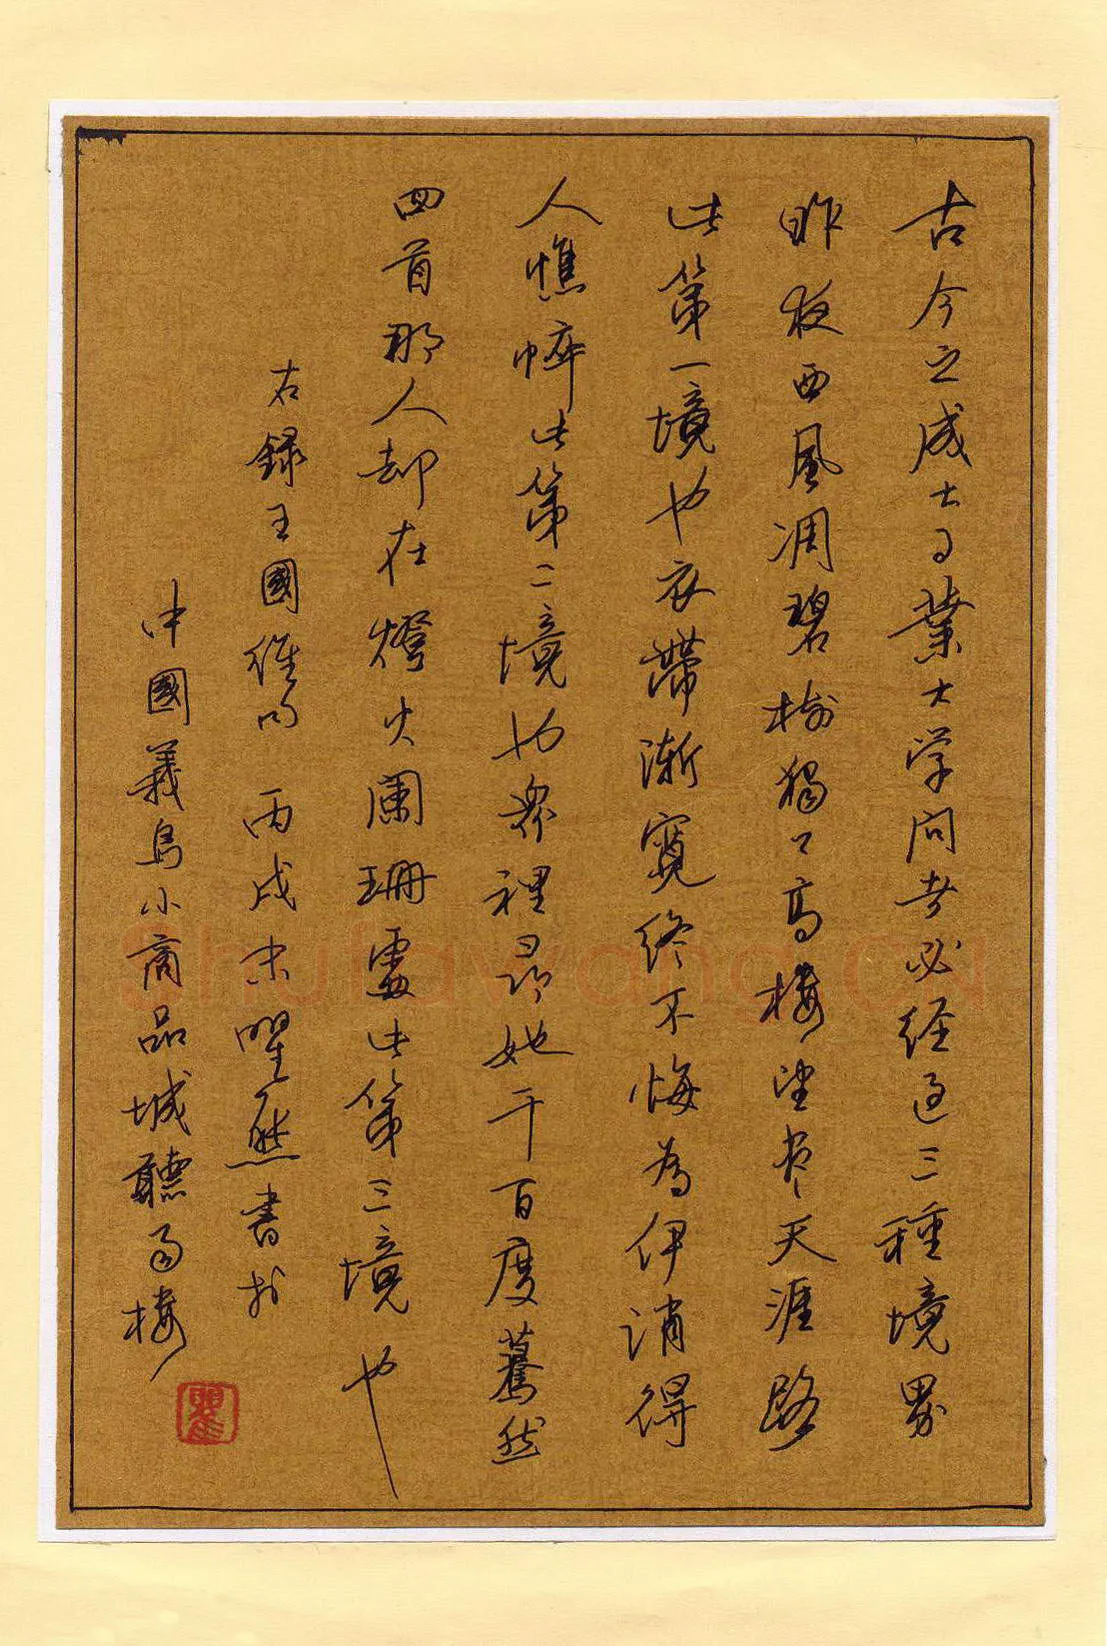 古今之成大事業大学问者必经过三種境界
昨夜西風凋碧樹獨上高樓望盡天涯路
此第一境也衣帶漸寬终不悔為伊消得
人憔悴此第二境也眾裡尋她千百度驀然
回首那人却在燈火闌珊處此第三境也
右錄王國维词 丙戌末瞿熊書於
中國義烏小商品城聽雨樓
Shufawang.CN